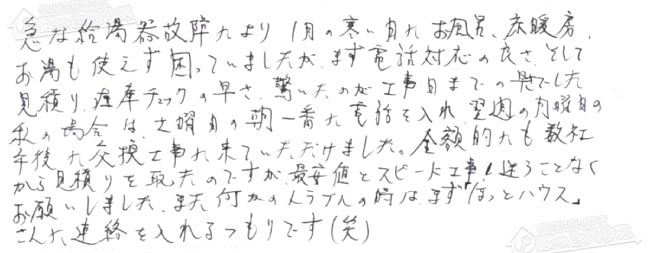 急な給湯器故障により1月の寒い日にお風呂、床暖房、
お湯も使えず困っていましたが、まず電話対応の良さ、そして
見積り、在庫チェックの早さ、驚いたのが工事日までの早さでした
私の場合は、土曜日の朝一番に電話を入れ翌週の月曜日の
午後に交換工事に来ていただけました。金額的にも数社
から見積りを取ったのですが、最安値とスピード工事!迷うことなく
お願いしました。また何かのトラブルの時はまず「ほっとハウス」
さんに連絡を入れるつもりです(笑)